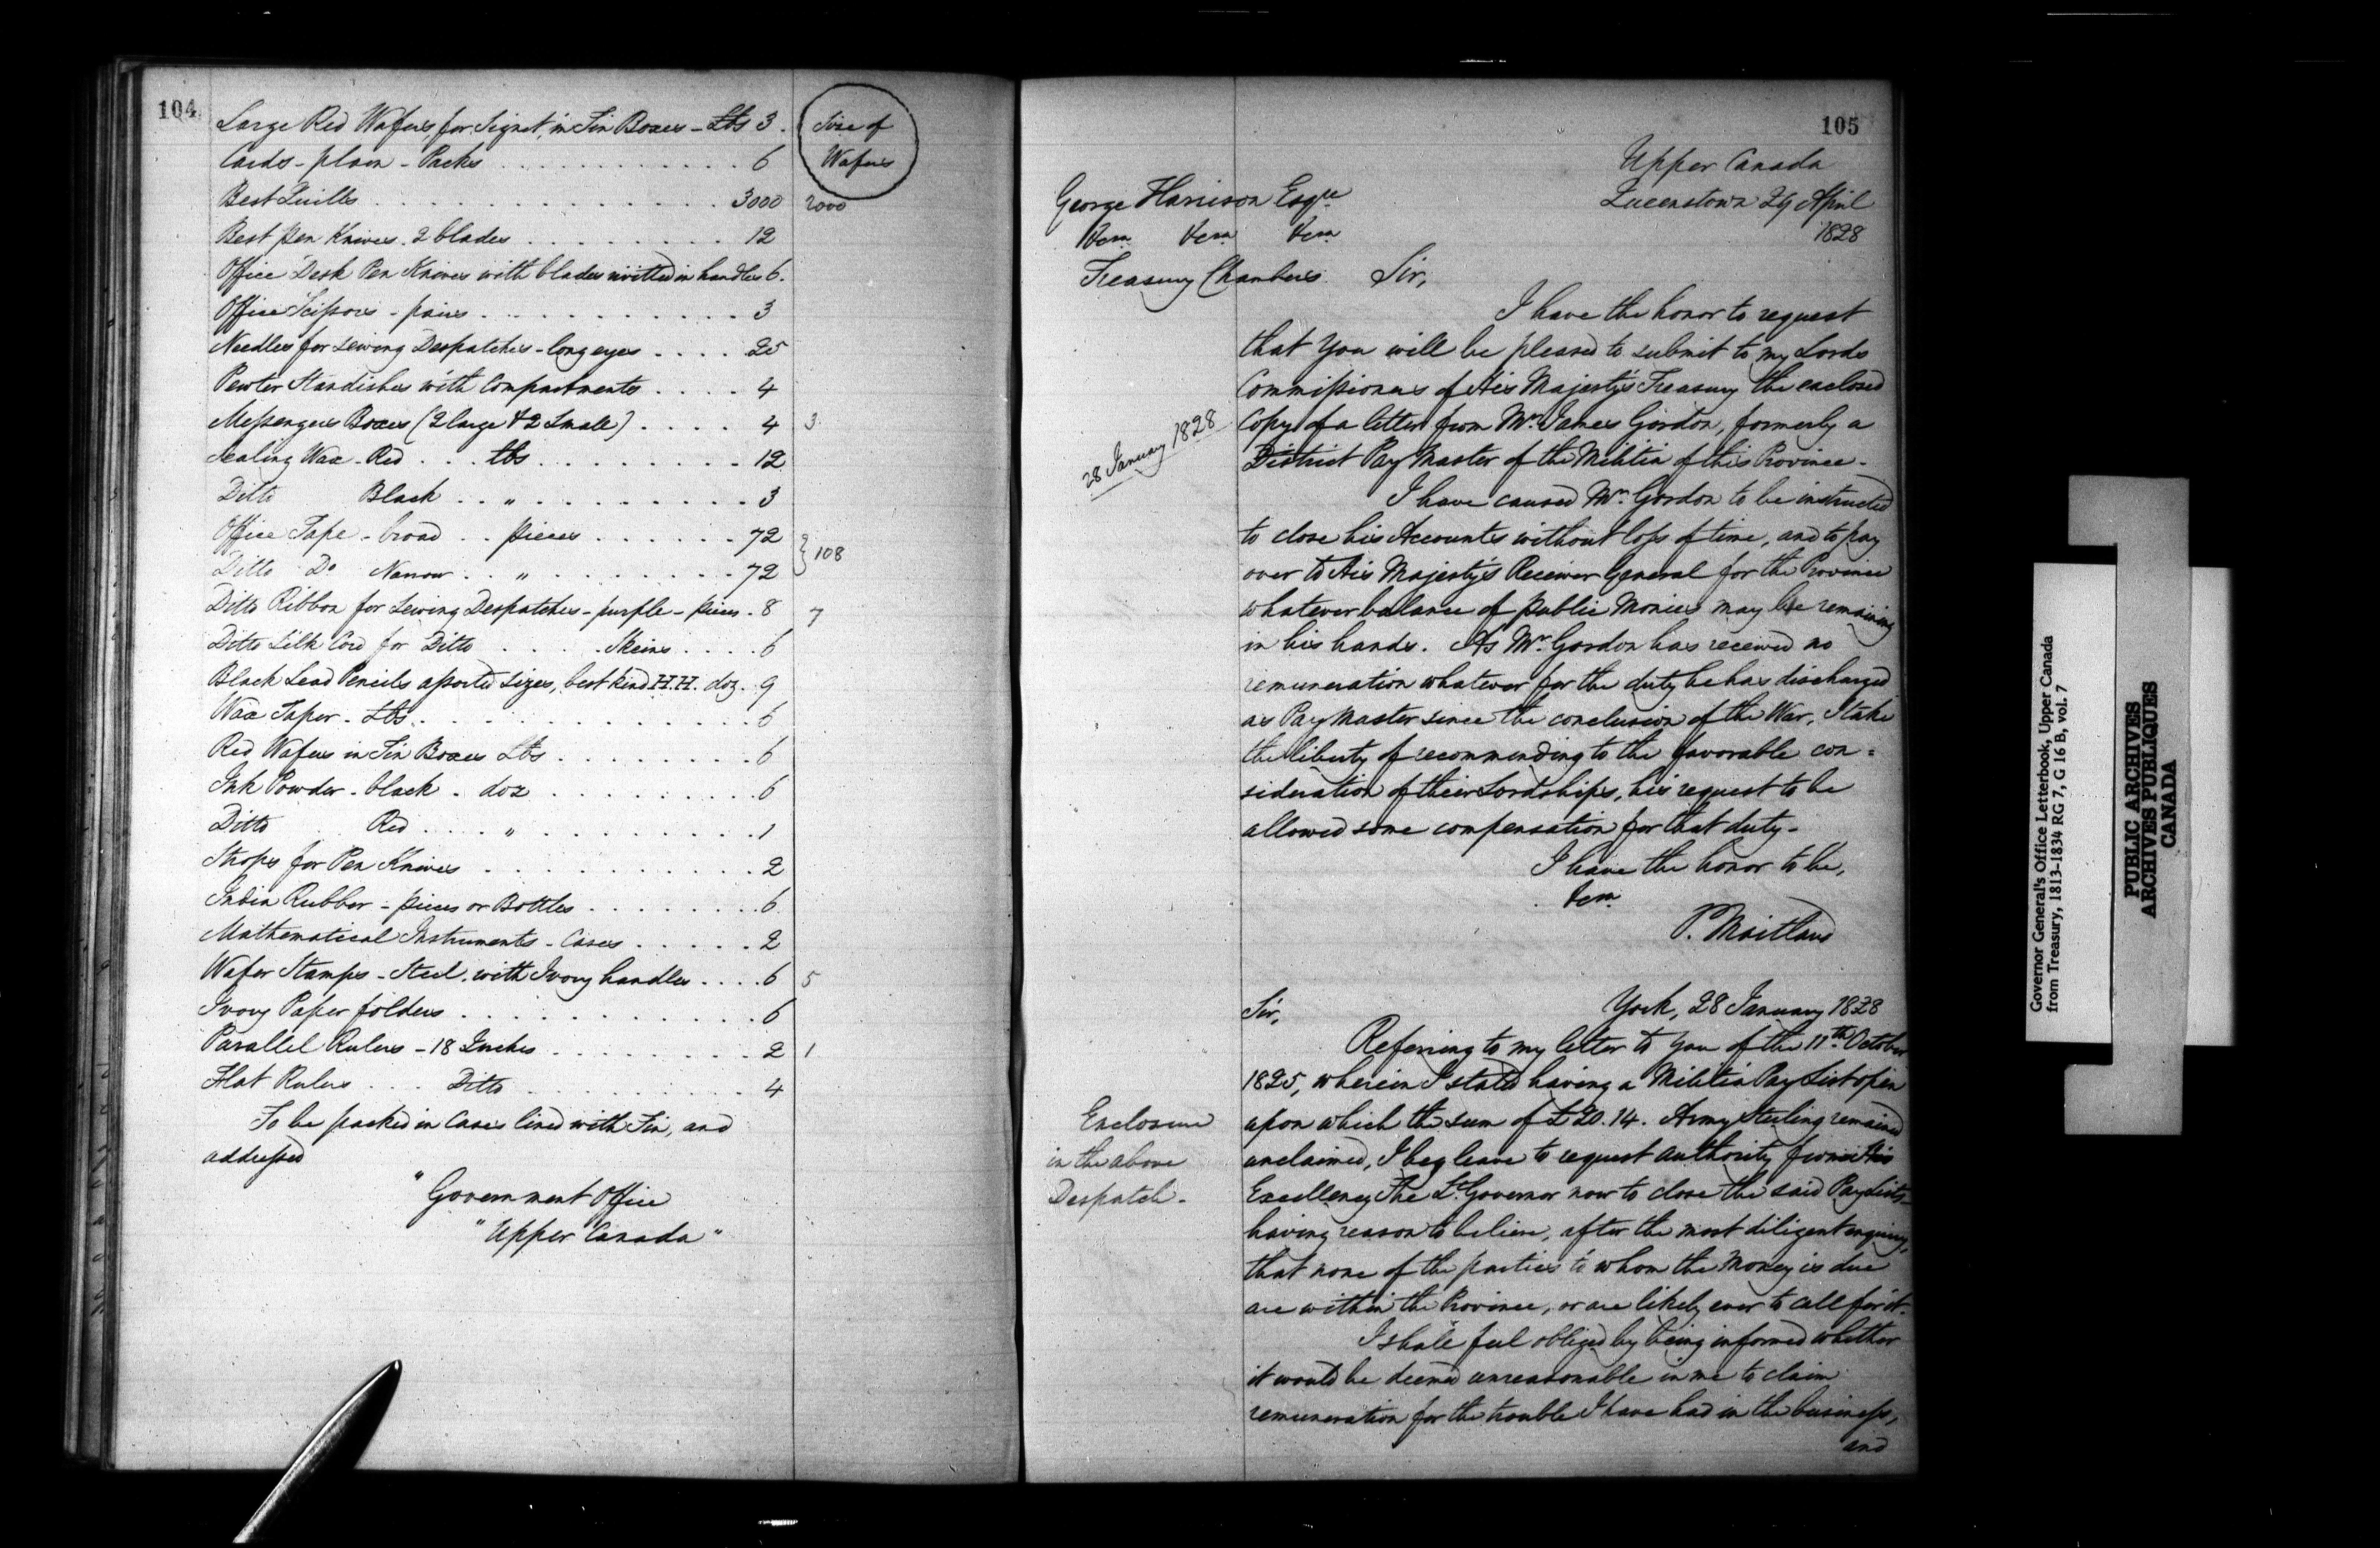 104
Large Red Wafers for Signet, in Tin Boxes - Lbs 3.
Size of
Wafers
Cards - plain - Packs . . . 6
Best Quills . . . 3000 2000
Best Pen Knives. 2 blades . . . 12
Office Desk Pen Knives with blades rivitted in handles 6.
Office Scissors - pairs . . . 3
Needles for sewing Despatches - long eyes . . . 25
Pewter Standishes with Compartments . . . 4
Messengers Boxes (2 large & 2 Small) . . . 4 3
Sealing Wax - Red . . . lbs . . . 12
Ditto Black . . " . . . 3
Office Tape - broad . . pieces . . . 72
} 108
Ditto Do Narrow . . " . . . 72
Ditto Ribbon for Sewing Despatches - purple - pieces . 8 7
Ditto Silk Cord for Ditto . . . Skeins . . . 6
Black Lead Pencils assorted sizes, best kind H.H. doz. 9
Wax Taper - Lbs . . . 6
Red Wafers in Tin Boxes Lbs . . . 6
Ink Powder - black - doz . . . 6
Ditto Red . . . " . . . 1
Strops for Pen Knives . . . 2
India Rubber - pieces or Bottles . . . 6
Mathematical Instruments - Cases . . . 2
Wafer Stamps - Steel, with Ivory handles . . . 6 5
Ivory Paper folders . . . 6
Parallel Rulers - 18 Inches . . . 2 1
Flat Rulers . . . Ditto . . . 4
To be packed in Cases lined with Tin, and
addressed
" Government Office
" Upper Canada "
105
Upper Canada
Queenstown 29 April
1828
George Harrison Esqre
&ca &ca &ca
Treasury Chambers.
Sir,
I have the honor to request
that You will be pleased to submit to my Lords
Commissioners of His Majesty's Treasury the enclosed
28 January 1828
Copy of a letter from Mr. James Gordon, formerly a
District Pay Master of the Militia of this Province -
I have caused Mr. Gordon to be instructed
to close his Accounts without loss of time, and to pay
over to His Majesty's Receiver General for the Province
whatever balance of public Monies may be remaining
in his hands. As Mr. Gordon has received no
remuneration whatever for the duty he has discharged
as Pay Master since the conclusion of the War, I take
the liberty of recommending to the favorable con=
sideration of their Lordships, his request to be
allowed some compensation for that duty -
I have the honor to be,
&ca
P. Maitland
York, 28 January 1828
Sir,
Referring to my letter to you of the 11th October
1825, wherein I stated having a Militia Pay List open
Enclosure
in the above
Despatch -
upon which the sum of £20.14. Army Sterling remained
unclaimed, I beg leave to request authority from His
Excellency The Lt. Governor now to close the said Pay Lists
having reason to believe, after the most diligent enquiry,
that none of the parties to whom the Money is due
are within the Province, or are likely ever to call for it.
I shall feel obliged by being informed whether
it would be deemed unreasonable in me to claim
remuneration for the trouble I have had in the business,
and
Governor General's Office Letterbook, Upper Canada
from Treasury, 1813-1834 RG 7, G 16 B, vol. 7
PUBLIC ARCHIVES
ARCHIVES PUBLIQUES
CANADA